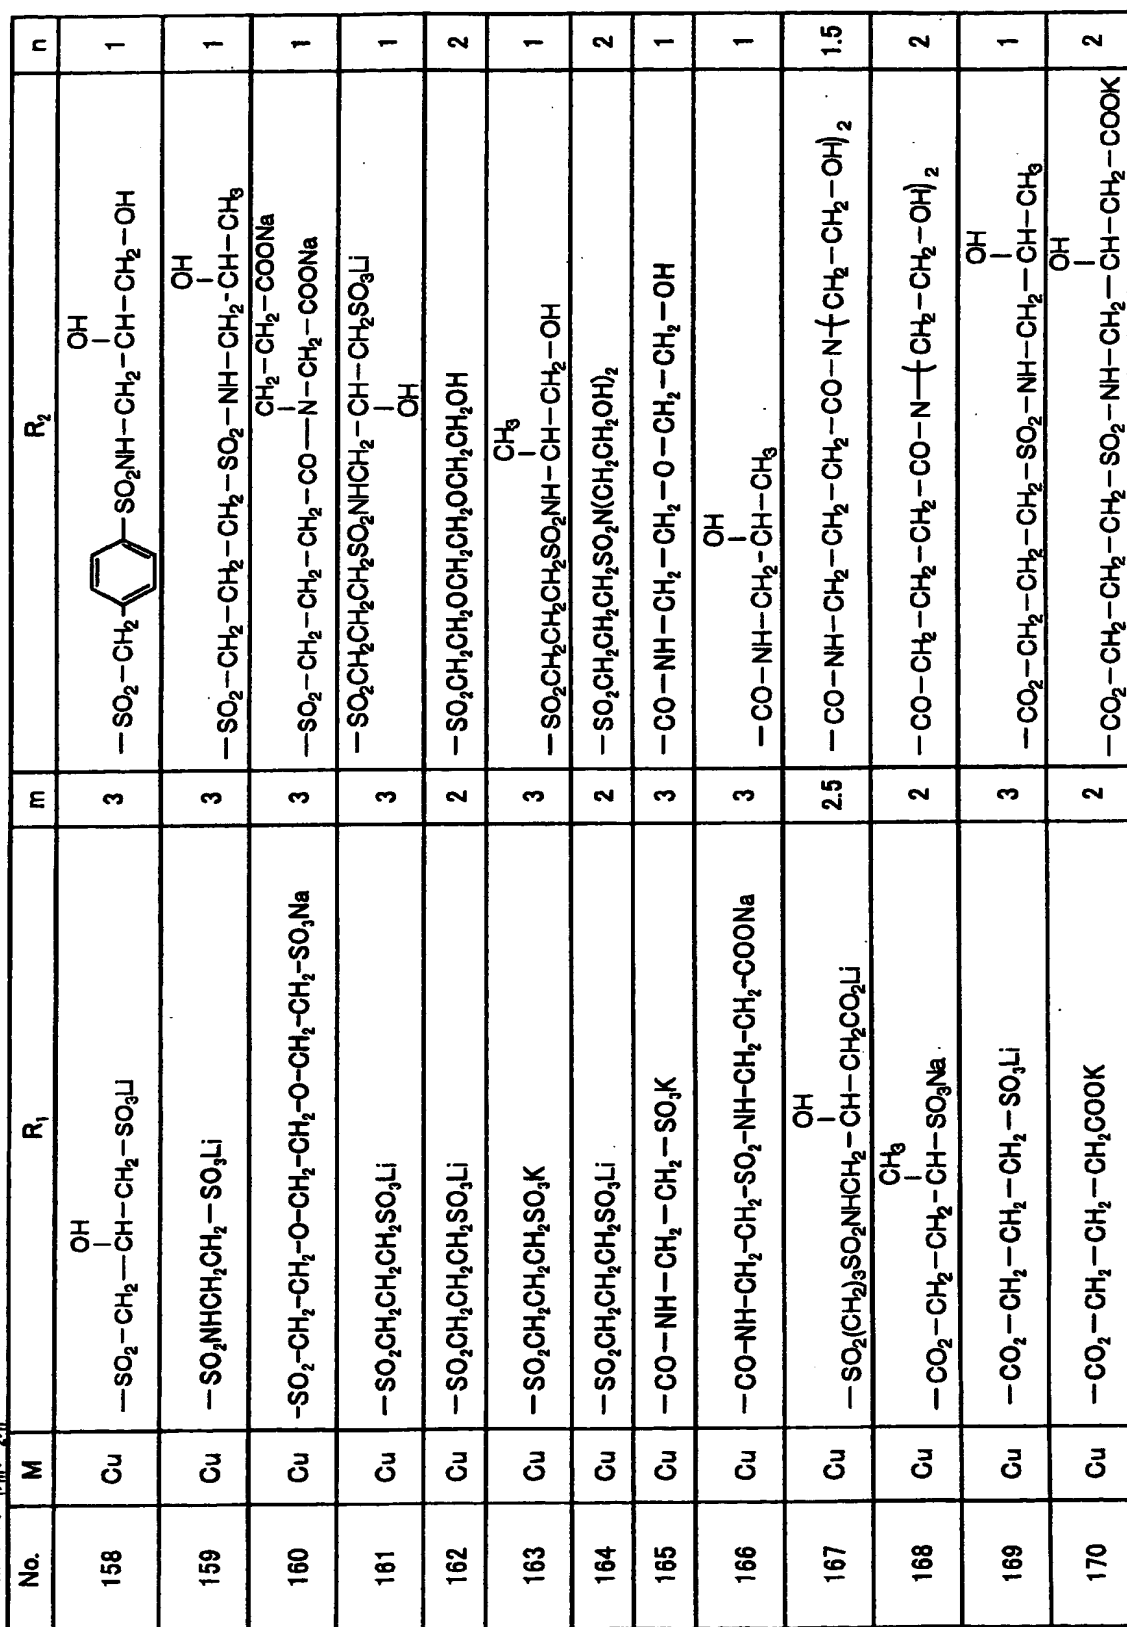 No. M R₁ m R₂ n
158 Cu —SO₂—CH₂—CH(OH)—CH₂—SO₃Li 3 —SO₂—CH₂—⌬—SO₂NH—CH₂—CH(OH)—CH₂—OH 1
159 Cu —SO₂NHCH₂CH₂—SO₃Li 3 —SO₂—CH₂—CH₂—CH₂—SO₂—NH—CH₂-CH(OH)—CH₃ 1
160 Cu -SO₂-CH₂-CH₂-O-CH₂-CH₂-O-CH₂-CH₂-SO₃Na 3 —SO₂—CH₂—CH₂—CH₂—CO—N(CH₂—CH₂—COONa)—CH₂—COONa 1
161 Cu —SO₂CH₂CH₂CH₂SO₃Li 3 —SO₂CH₂CH₂CH₂SO₂NHCH₂—CH(OH)—CH₂SO₃Li 1
162 Cu —SO₂CH₂CH₂CH₂SO₃Li 2 —SO₂CH₂CH₂OCH₂CH₂OCH₂CH₂OH 2
163 Cu —SO₂CH₂CH₂CH₂SO₃K 3 —SO₂CH₂CH₂CH₂SO₂NH—CH(CH₃)—CH₂—OH 1
164 Cu —SO₂CH₂CH₂CH₂SO₃Li 2 —SO₂CH₂CH₂CH₂SO₂N(CH₂CH₂OH)₂ 2
165 Cu —CO—NH—CH₂—CH₂—SO₃K 3 —CO—NH—CH₂—CH₂—O—CH₂—CH₂—OH 1
166 Cu —CO—NH—CH₂—CH₂—SO₂—NH—CH₂—CH₂—COONa 3 —CO—NH—CH₂—CH(OH)—CH₃ 1
167 Cu —SO₂(CH₂)₃SO₂NHCH₂—CH(OH)—CH₂CO₂Li 2.5 —CO—NH—CH₂—CH₂—CH₂—CO—N—(CH₂—CH₂—OH)₂ 1.5
168 Cu —CO₂—CH₂—CH₂—CH(CH₃)—SO₃Na 2 —CO—CH₂—CH₂—CH₂—CO—N—(CH₂—CH₂—OH)₂ 2
169 Cu —CO₂—CH₂—CH₂—CH₂—SO₃Li 3 —CO₂—CH₂—CH₂—CH₂—SO₂—NH—CH₂—CH(OH)—CH₃ 1
170 Cu —CO₂—CH₂—CH₂—CH₂COOK 2 —CO₂—CH₂—CH₂—CH₂—SO₂—NH—CH₂—CH(OH)—CH₂—COOK 2